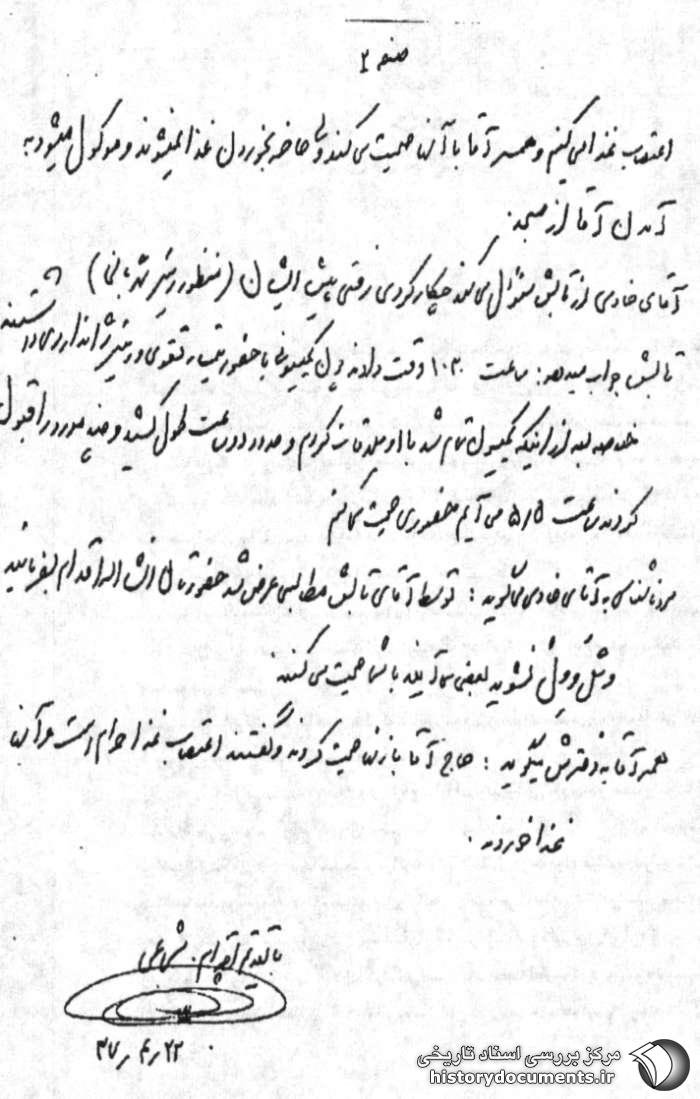 صفحه ۲
اعتصاب غذا می کنیم و همسر آقا با آنها صحبت می کند ولی حاضر بخوردن غذا نمیشوند و موکول میشود به
آمدن آقا از مسجد.
آقای خادمی از تابش سئوال می کند چکار کردی رفتی پیش ایشان (منظور رئیس شهربانی)
تابش جواب میدهد: ساعت ۱۰۳۰ وقت دادند چون کمیسیونی با حضور تقوی و رئیس ژاندارمری داشتند
خلاصه بعد از اینکه کمیسیون تمام شد با او ملاقات کردم و حدود دو ساعت طول کشید و چند مورد را قبول
کردند ساعت ۵/۵ می آیم حضوری صحبت می کنم
مرد ناشناسی به آقای خادمی میگوید: توسط آقای تابش مطالبی عرض شد حضورتان انشااله اقدام بفرمائید
و شل و ول نشوید بعضی ها آیند با شما صحبت می کنند.
همسر آقا به دخترش میگوید: حاج آقا با زنها صحبت کردند و گفتند اعتصاب غذا حرام است و آنها
غذا خوردند.
با تقدیم احترام.
۳۷/۴/۲۲
مرکز بررسی اسناد تاریخی
historydocuments.ir